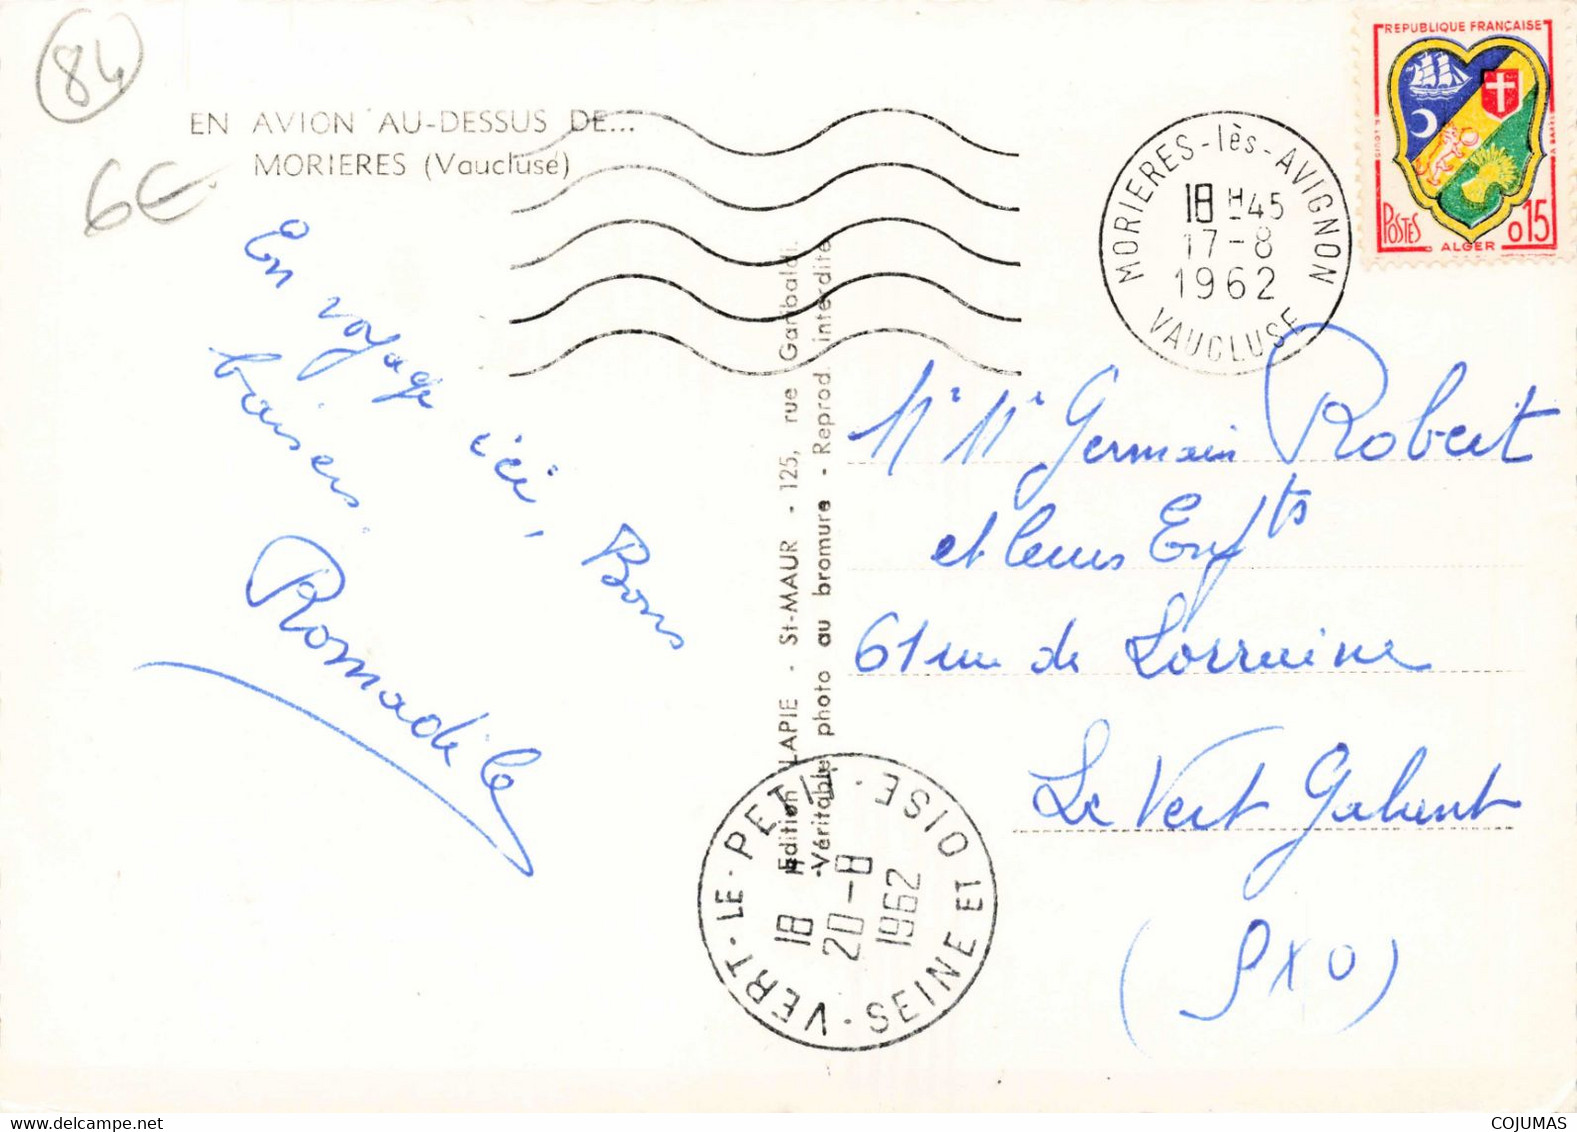 84
6€
EN AVION AU-DESSUS DE...
MORIERES (Vaucluse)
En voyage ici, Bons
baisers.
Romadile
Edition LAPIE - St-MAUR - 125, rue Garibaldi.
Véritable photo au bromure - Reprod. interdite
MORIERES-lès-AVIGNON
18 H 45
17-8
1962
VAUCLUSE
REPUBLIQUE FRANÇAISE
POSTES
ALGER
0,15
Mr Me Germain Robert
et leurs Enfts
61 rue de Lorraine
Le Vert Galant
(SXO)
VERT-LE-PETIT
18 H
20-8
1962
SEINE ET OISE
COJUMAS